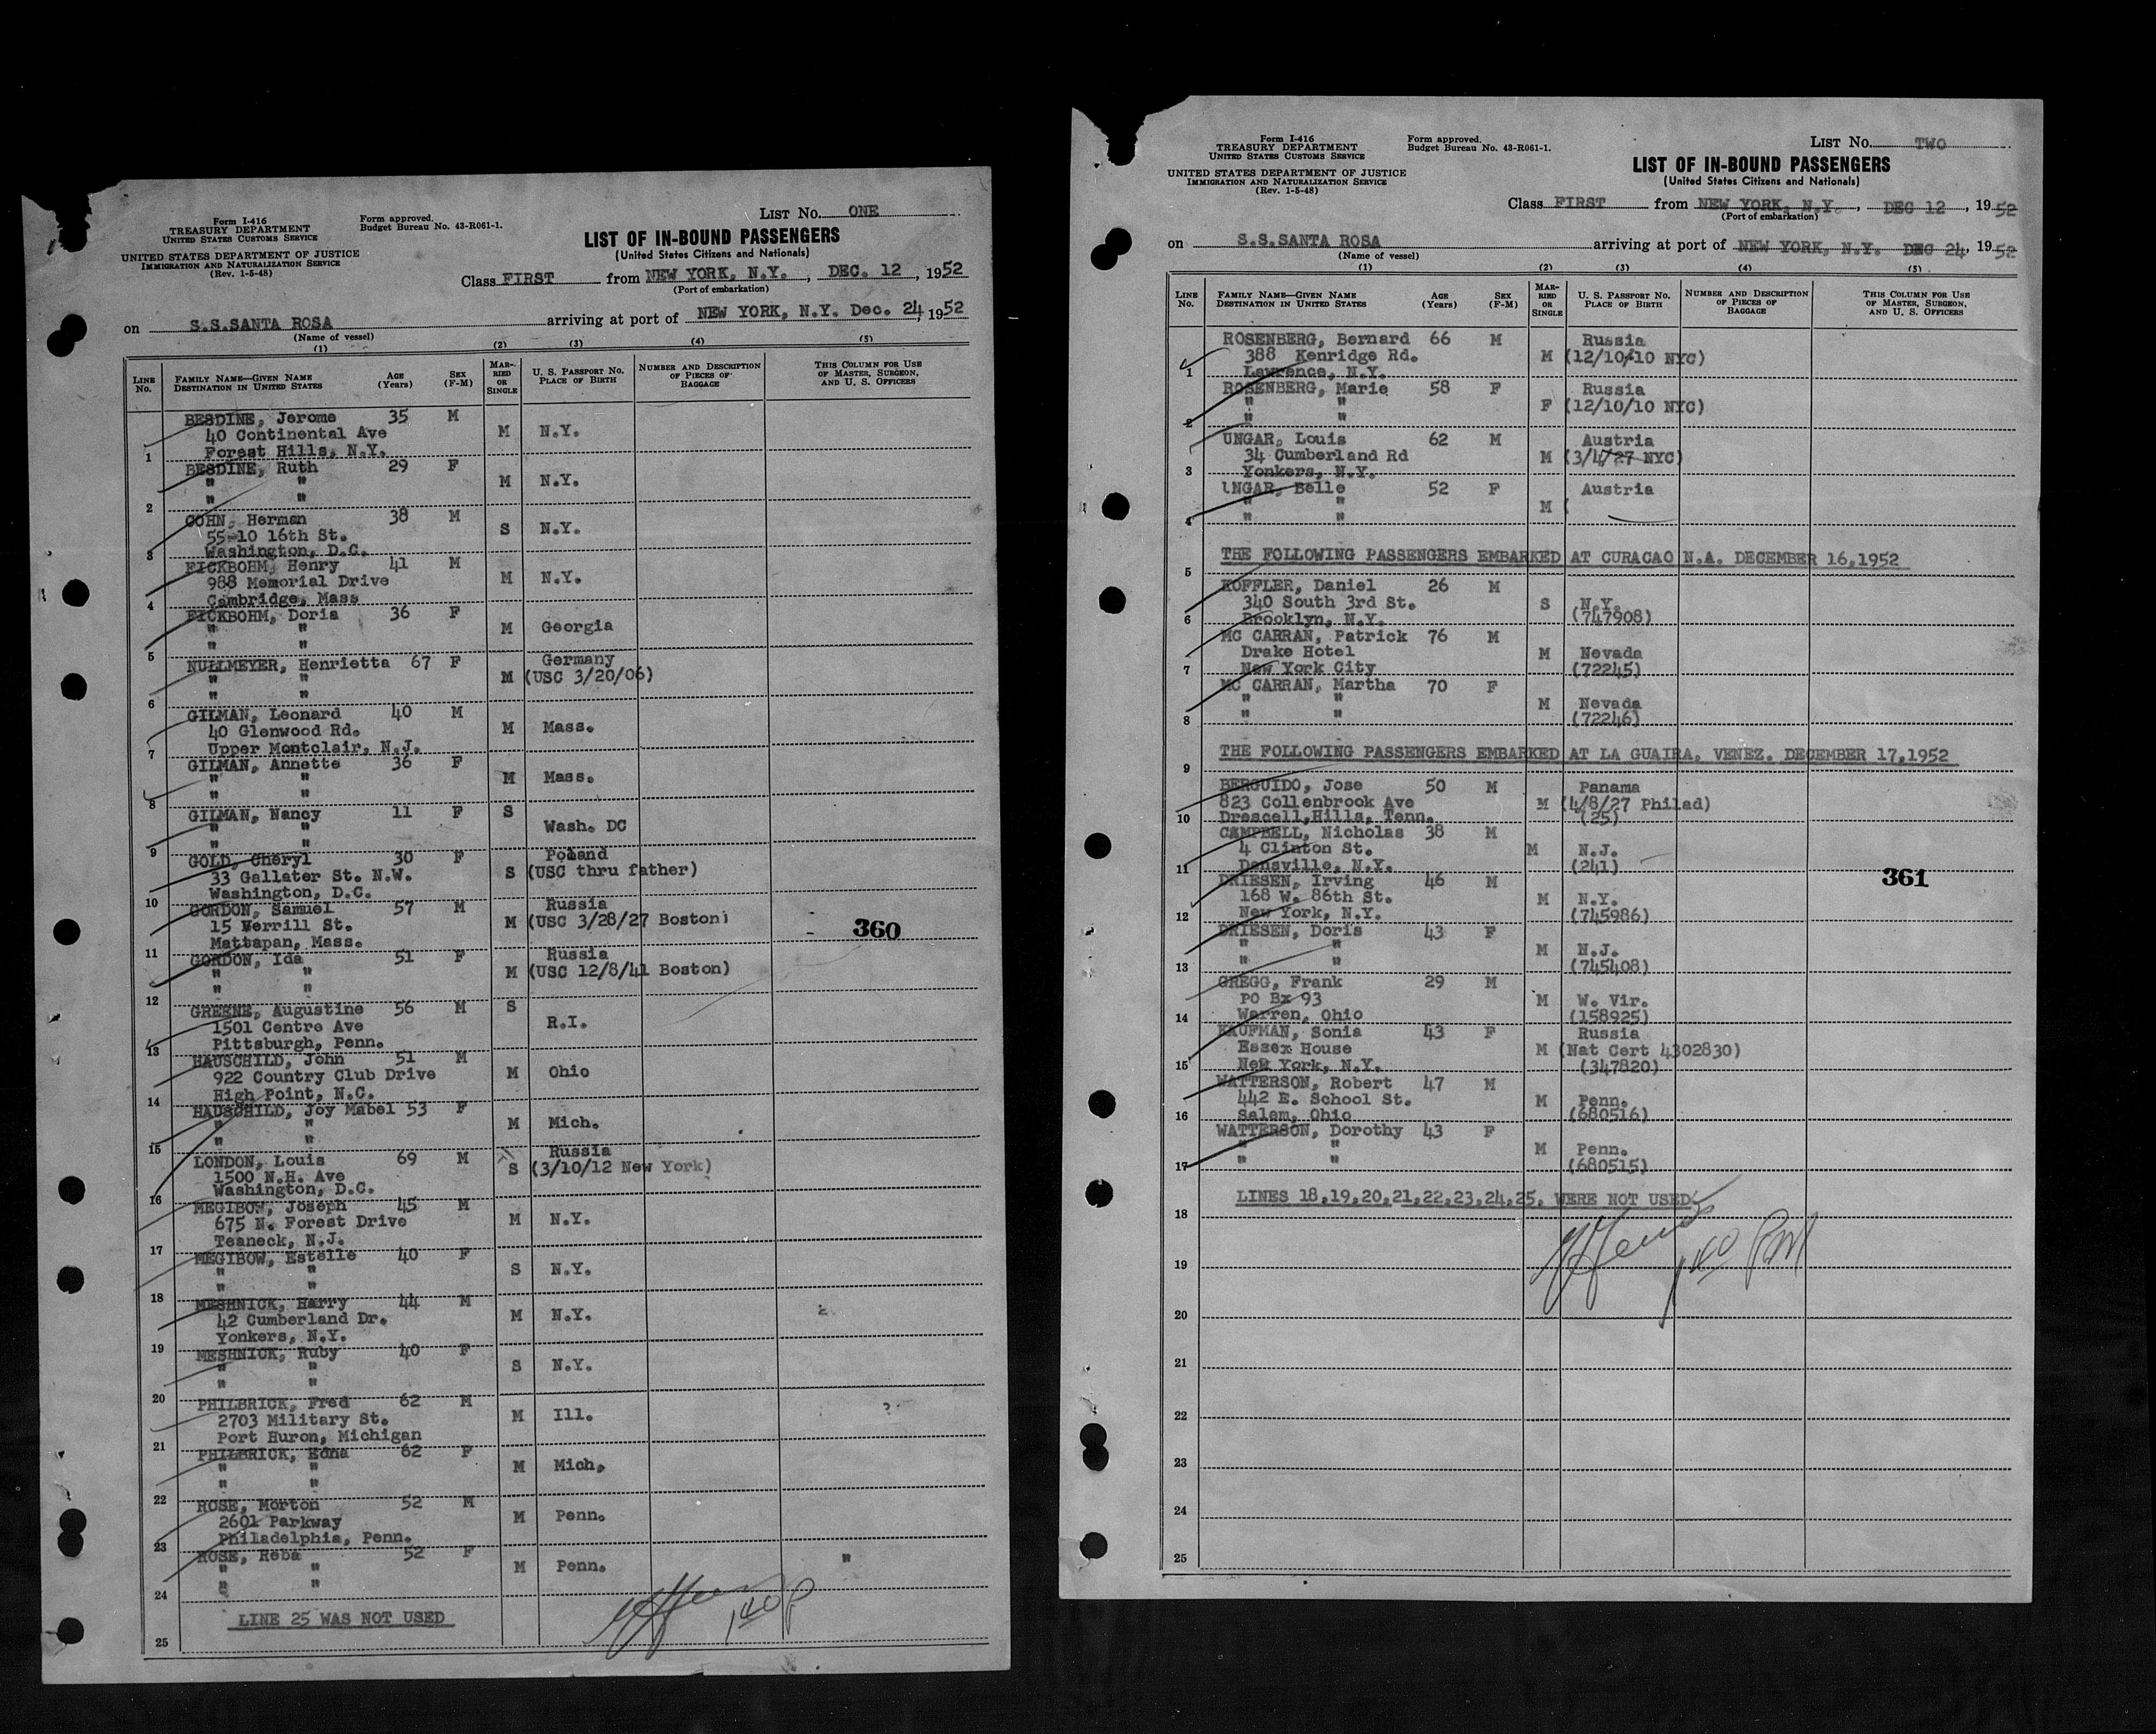 Form I-416
TREASURY DEPARTMENT
UNITED STATES CUSTOMS SERVICE
UNITED STATES DEPARTMENT OF JUSTICE
IMMIGRATION AND NATURALIZATION SERVICE
(Rev. 1-5-48)
Form approved.
Budget Bureau No. 43-R061-1.
LIST No. ONE
LIST OF IN-BOUND PASSENGERS
(United States Citizens and Nationals)
Class FIRST from NEW YORK, N.Y., DEC. 12, 1952
(Port of embarkation)
on S.S.SANTA ROSA arriving at port of NEW YORK, N.Y. Dec. 24, 1952
(Name of vessel)
(1) (2) (3) (4) (5)
LINE No. FAMILY NAME—GIVEN NAME DESTINATION IN UNITED STATES AGE (Years) SEX (F-M) MARRIED OR SINGLE U. S. PASSPORT No. PLACE OF BIRTH NUMBER AND DESCRIPTION OF PIECES OF BAGGAGE THIS COLUMN FOR USE OF MASTER, SURGEON, AND U. S. OFFICERS
BESDINE, Jerome 35 M
40 Continental Ave M N.Y.
1 Forest Hills, N.Y.
BESDINE, Ruth 29 F
" " M N.Y.
2 " "
COHN, Herman 38 M
55-10 16th St. S N.Y.
3 Washington, D.C.
EICKBOHM, Henry 41 M
988 Memorial Drive M N.Y.
4 Cambridge, Mass
EICKBOHM, Doris 36 F
" " M Georgia
5 " "
NULLMEYER, Henrietta 67 F Germany
" " M (USC 3/20/06)
6 " "
GILMAN, Leonard 40 M
40 Glenwood Rd. M Mass.
7 Upper Montclair, N.J.
GILMAN, Annette 36 F
" " M Mass.
8 " "
GILMAN, Nancy 11 F S
" " Wash. DC
9 " "
GOLD, Cheryl 30 F Poland
33 Gallater St. N.W. S (USC thru father)
10 Washington, D.C.
GORDON, Samuel 57 M Russia
15 Verrill St. M (USC 3/28/27 Boston)
11 Mattapan, Mass.
360
GORDON, Ida 51 F Russia
" " M (USC 12/8/41 Boston)
12 " "
GREENE, Augustine 56 M S
1501 Centre Ave R.I.
13 Pittsburgh, Penn.
HAUSCHILD, John 51 M
922 Country Club Drive M Ohio
14 High Point, N.C.
HAUSCHILD, Joy Mabel 53 F
" " M Mich.
15 " "
LONDON, Louis 69 M Russia
1500 N.H. Ave S (3/10/12 New York)
16 Washington, D.C.
MEGIBOW, Joseph 45 M
675 N. Forest Drive M N.Y.
17 Teaneck, N.J.
MEGIBOW, Estelle 40 F
" " S N.Y.
18 " "
MESHNICK, Harry 44 M
42 Cumberland Dr. M N.Y.
19 Yonkers, N.Y.
MESHNICK, Ruby 40 F
" " S N.Y.
20 " "
PHILBRICK, Fred 62 M
2703 Military St. M Ill.
21 Port Huron, Michigan
PHILBRICK, Edna 62 F
" " M Mich.
22 " "
ROSE, Morton 52 M
2601 Parkway M Penn.
23 Philadelphia, Penn.
ROSE, Reba 52 F
" " M Penn. "
24 " "
LINE 25 WAS NOT USED
25
1 40 P
Form I-416
TREASURY DEPARTMENT
UNITED STATES CUSTOMS SERVICE
UNITED STATES DEPARTMENT OF JUSTICE
IMMIGRATION AND NATURALIZATION SERVICE
(Rev. 1-5-48)
Form approved.
Budget Bureau No. 43-R061-1.
LIST No. TWO
LIST OF IN-BOUND PASSENGERS
(United States Citizens and Nationals)
Class FIRST from NEW YORK, N.Y., DEC 12, 1952
(Port of embarkation)
on S.S.SANTA ROSA arriving at port of NEW YORK, N.Y. DEC 24, 1952
(Name of vessel)
(1) (2) (3) (4) (5)
LINE No. FAMILY NAME—GIVEN NAME DESTINATION IN UNITED STATES AGE (Years) SEX (F-M) MARRIED OR SINGLE U. S. PASSPORT No. PLACE OF BIRTH NUMBER AND DESCRIPTION OF PIECES OF BAGGAGE THIS COLUMN FOR USE OF MASTER, SURGEON, AND U. S. OFFICERS
ROSENBERG, Bernard 66 M Russia
388 Kenridge Rd. M (12/10/10 NYC)
1 Lawrence, N.Y.
ROSENBERG, Marie 58 F Russia
" " F (12/10/10 NYC)
2 " "
UNGAR, Louis 62 M Austria
34 Cumberland Rd M (3/4/27 NYC)
3 Yonkers, N.Y.
UNGAR, Belle 52 F Austria
" " M (
4 " "
THE FOLLOWING PASSENGERS EMBARKED AT CURACAO N.A. DECEMBER 16,1952
5
KOFFLER, Daniel 26 M
340 South 3rd St. S N.Y.
6 Brooklyn, N.Y. (747908)
MC CARRAN, Patrick 76 M
Drake Hotel M Nevada
7 New York City (72245)
MC CARRAN, Martha 70 F
" " M Nevada
8 " " (72246)
THE FOLLOWING PASSENGERS EMBARKED AT LA GUAIRA, VENEZ. DECEMBER 17,1952
9
BERGUIDO, Jose 50 M Panama
823 Collenbrook Ave M (4/8/27 Philad)
10 Drescell,Hills, Tenn. (25)
CAMPBELL, Nicholas 38 M
4 Clinton St. M N.J.
11 Dansville, N.Y. (241)
361
DRIESEN, Irving 46 M
168 W. 86th St. M N.Y.
12 New York, N.Y. (745986)
DRIESEN, Doris 43 F
" " M N.J.
13 " " (745408)
GREGG, Frank 29 M
PO Bx 93 M W. Vir.
14 Warren, Ohio (158925)
KAUFMAN, Sonia 43 F Russia
Essex House M (Nat Cert 4302830)
15 New York, N.Y. (347820)
WATTERSON, Robert 47 M
442 E. School St. M Penn.
16 Salem, Ohio (680516)
WATTERSON, Dorothy 43 F
" " M Penn.
17 " " (680515)
LINES 18,19,20,21,22,23,24,25, WERE NOT USED
18
1 40 PM
19
20
21
22
23
24
25